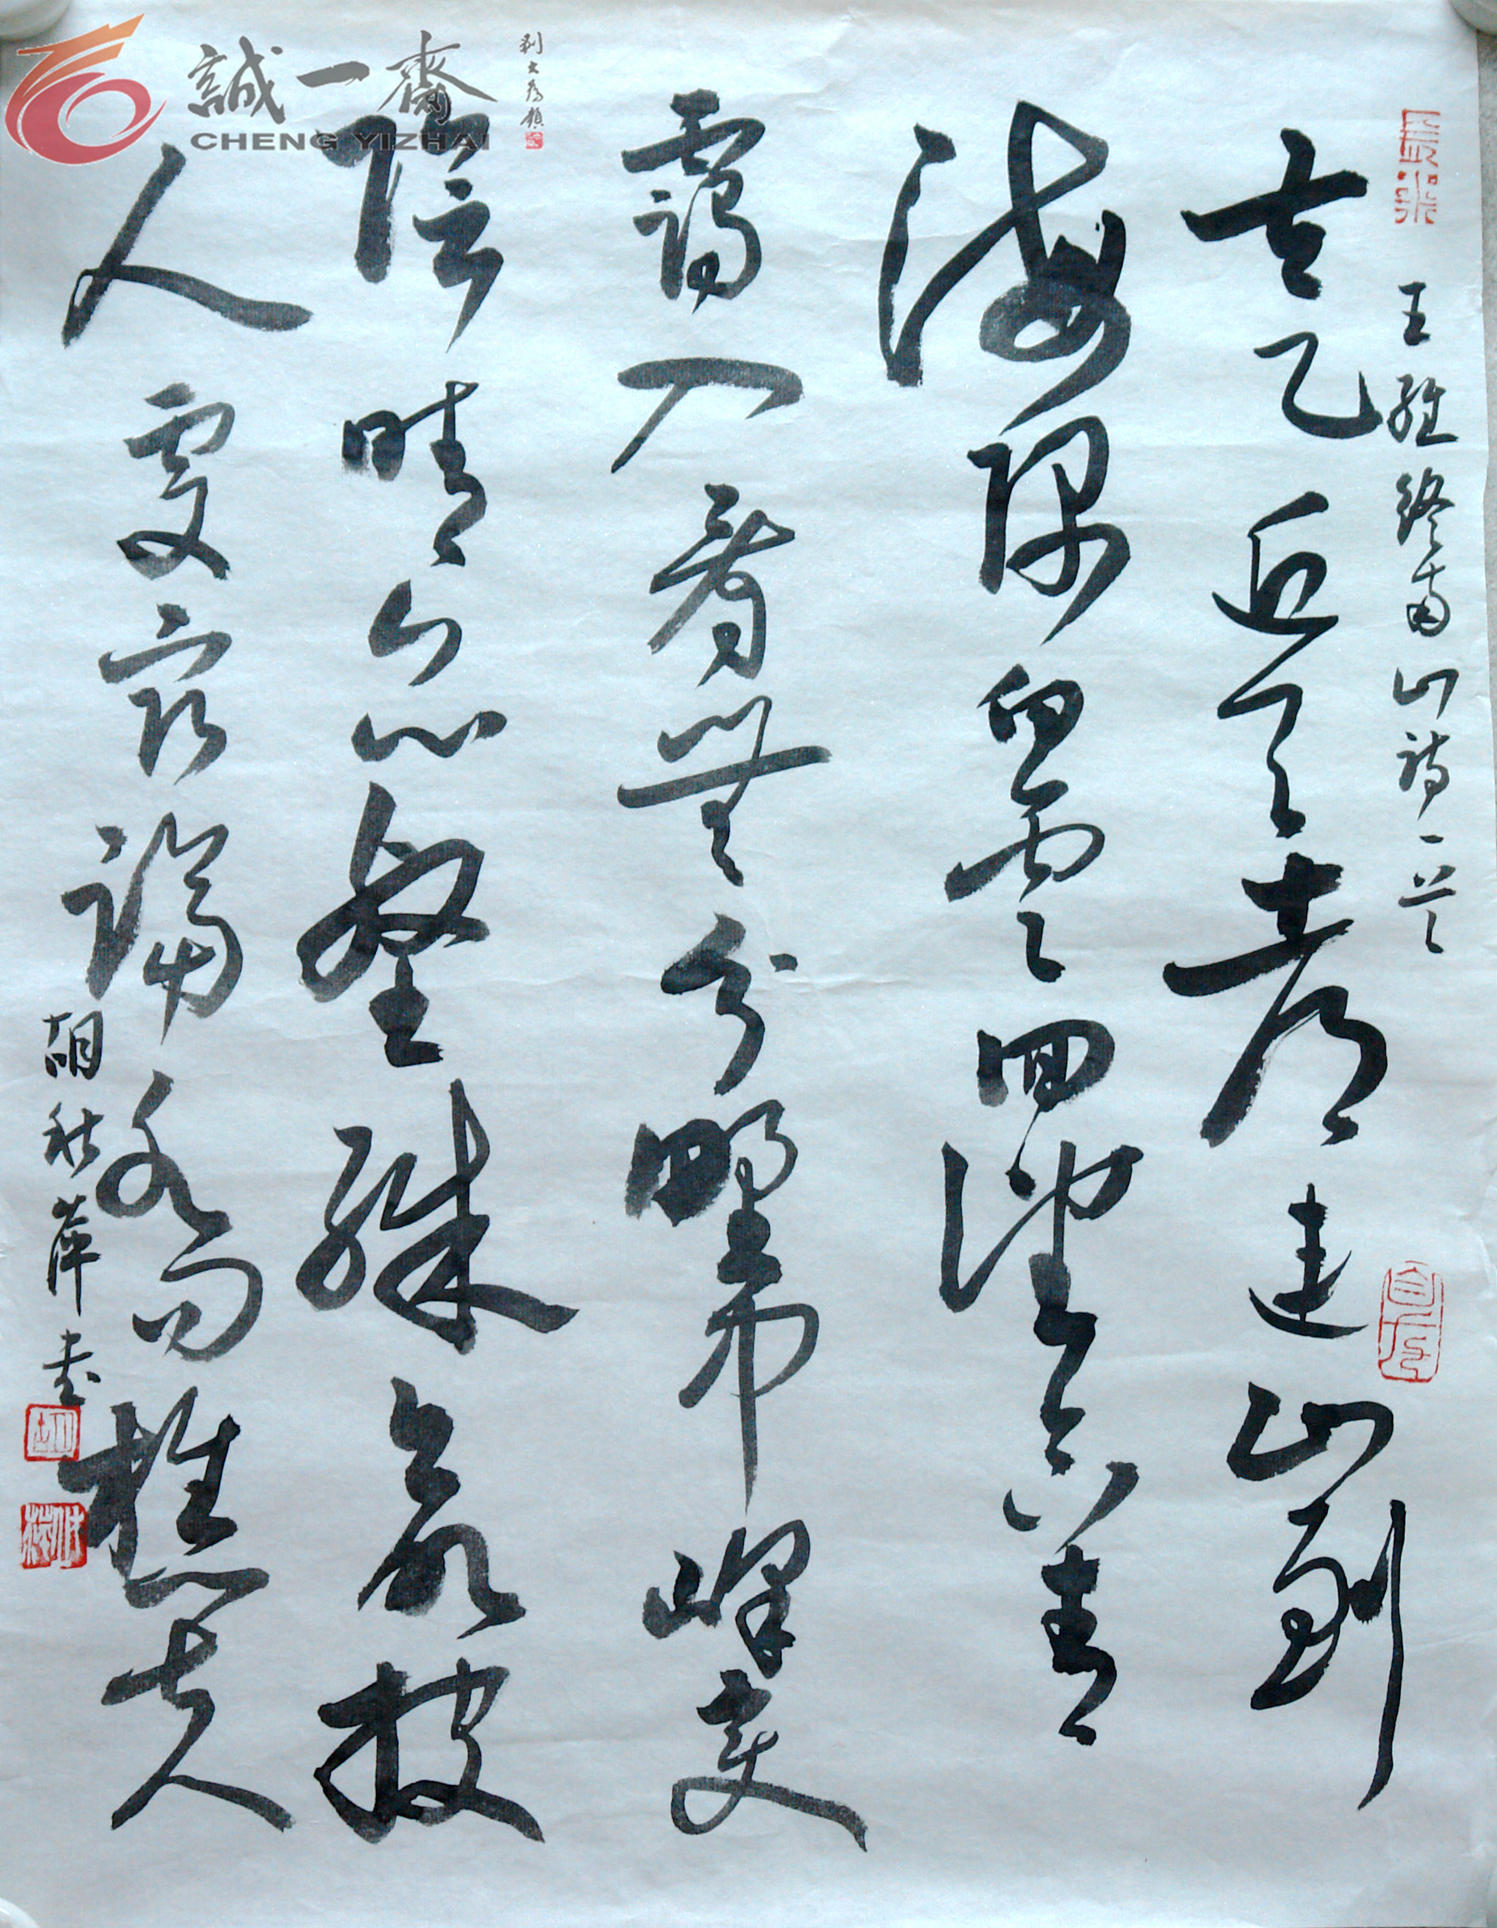 誠一齋
CHENG YIZHAI
劉大為題
王維終南山詩一首
太乙近天都連山到
海隅白雲回望合青
靄入看無分野中峰變
陰晴眾壑殊欲投
人處宿隔水問樵夫
胡秋萍書